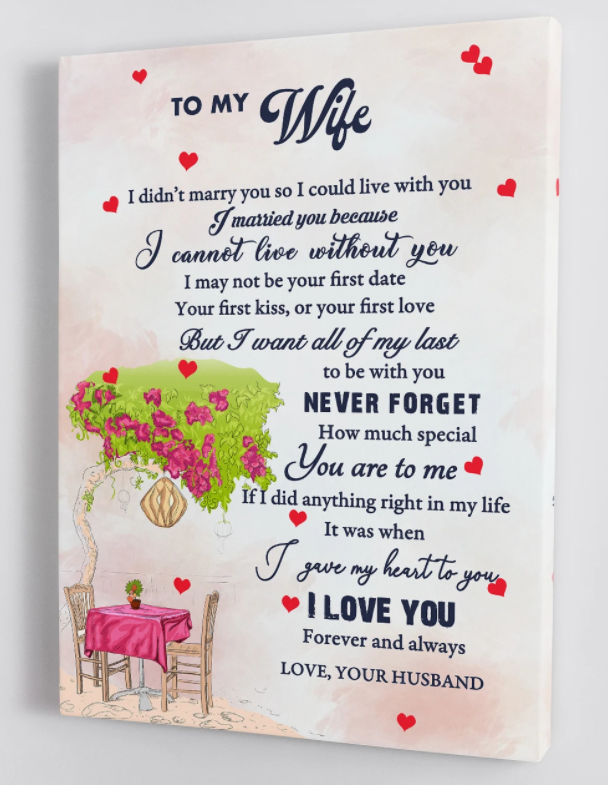 TO MY Wife
I didn't marry you so I could live with you
I married you because
I cannot live without you
I may not be your first date
Your first kiss, or your first love
But I want all of my last
to be with you
NEVER FORGET
How much special
You are to me
If I did anything right in my life
It was when
I gave my heart to you
I LOVE YOU
Forever and always
LOVE, YOUR HUSBAND